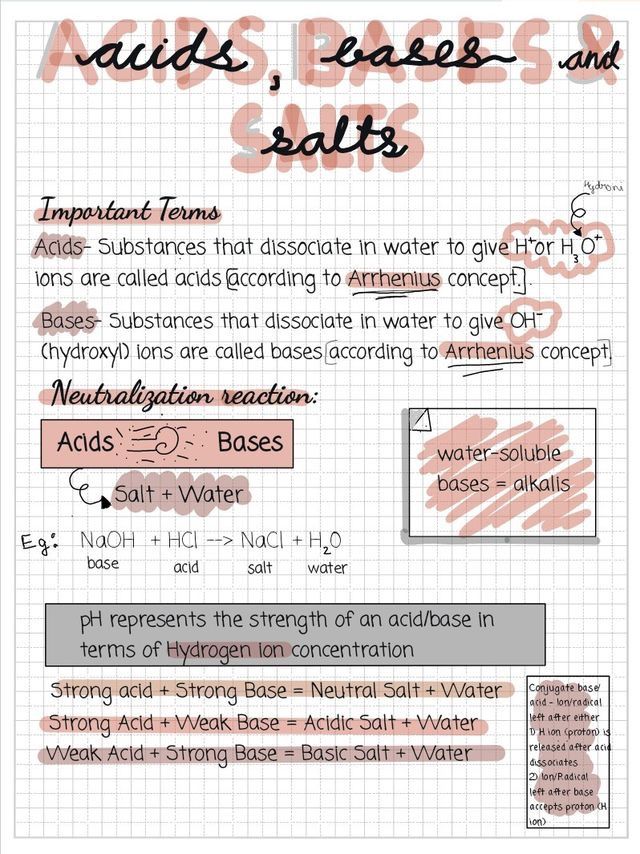 acids, bases and
salts
Important Terms
Hydroni
Acids- Substances that dissociate in water to give H⁺or H₃O⁺
ions are called acids [according to Arrhenius concept].
Bases- Substances that dissociate in water to give OH⁻
(hydroxyl) ions are called bases [according to Arrhenius concept]
Neutralization reaction:
Acids Bases
Salt + Water
water-soluble
bases = alkalis
Eg: NaOH + HCl --> NaCl + H₂O
base acid salt water
pH represents the strength of an acid/base in
terms of Hydrogen ion concentration
Strong acid + Strong Base = Neutral Salt + Water
Strong Acid + Weak Base = Acidic Salt + Water
Weak Acid + Strong Base = Basic Salt + Water
Conjugate base/
acid - Ion/radical
left after either
1) H ion (proton) is
released after acid
dissociates
2) Ion/Radical
left after base
accepts proton (H
ion)